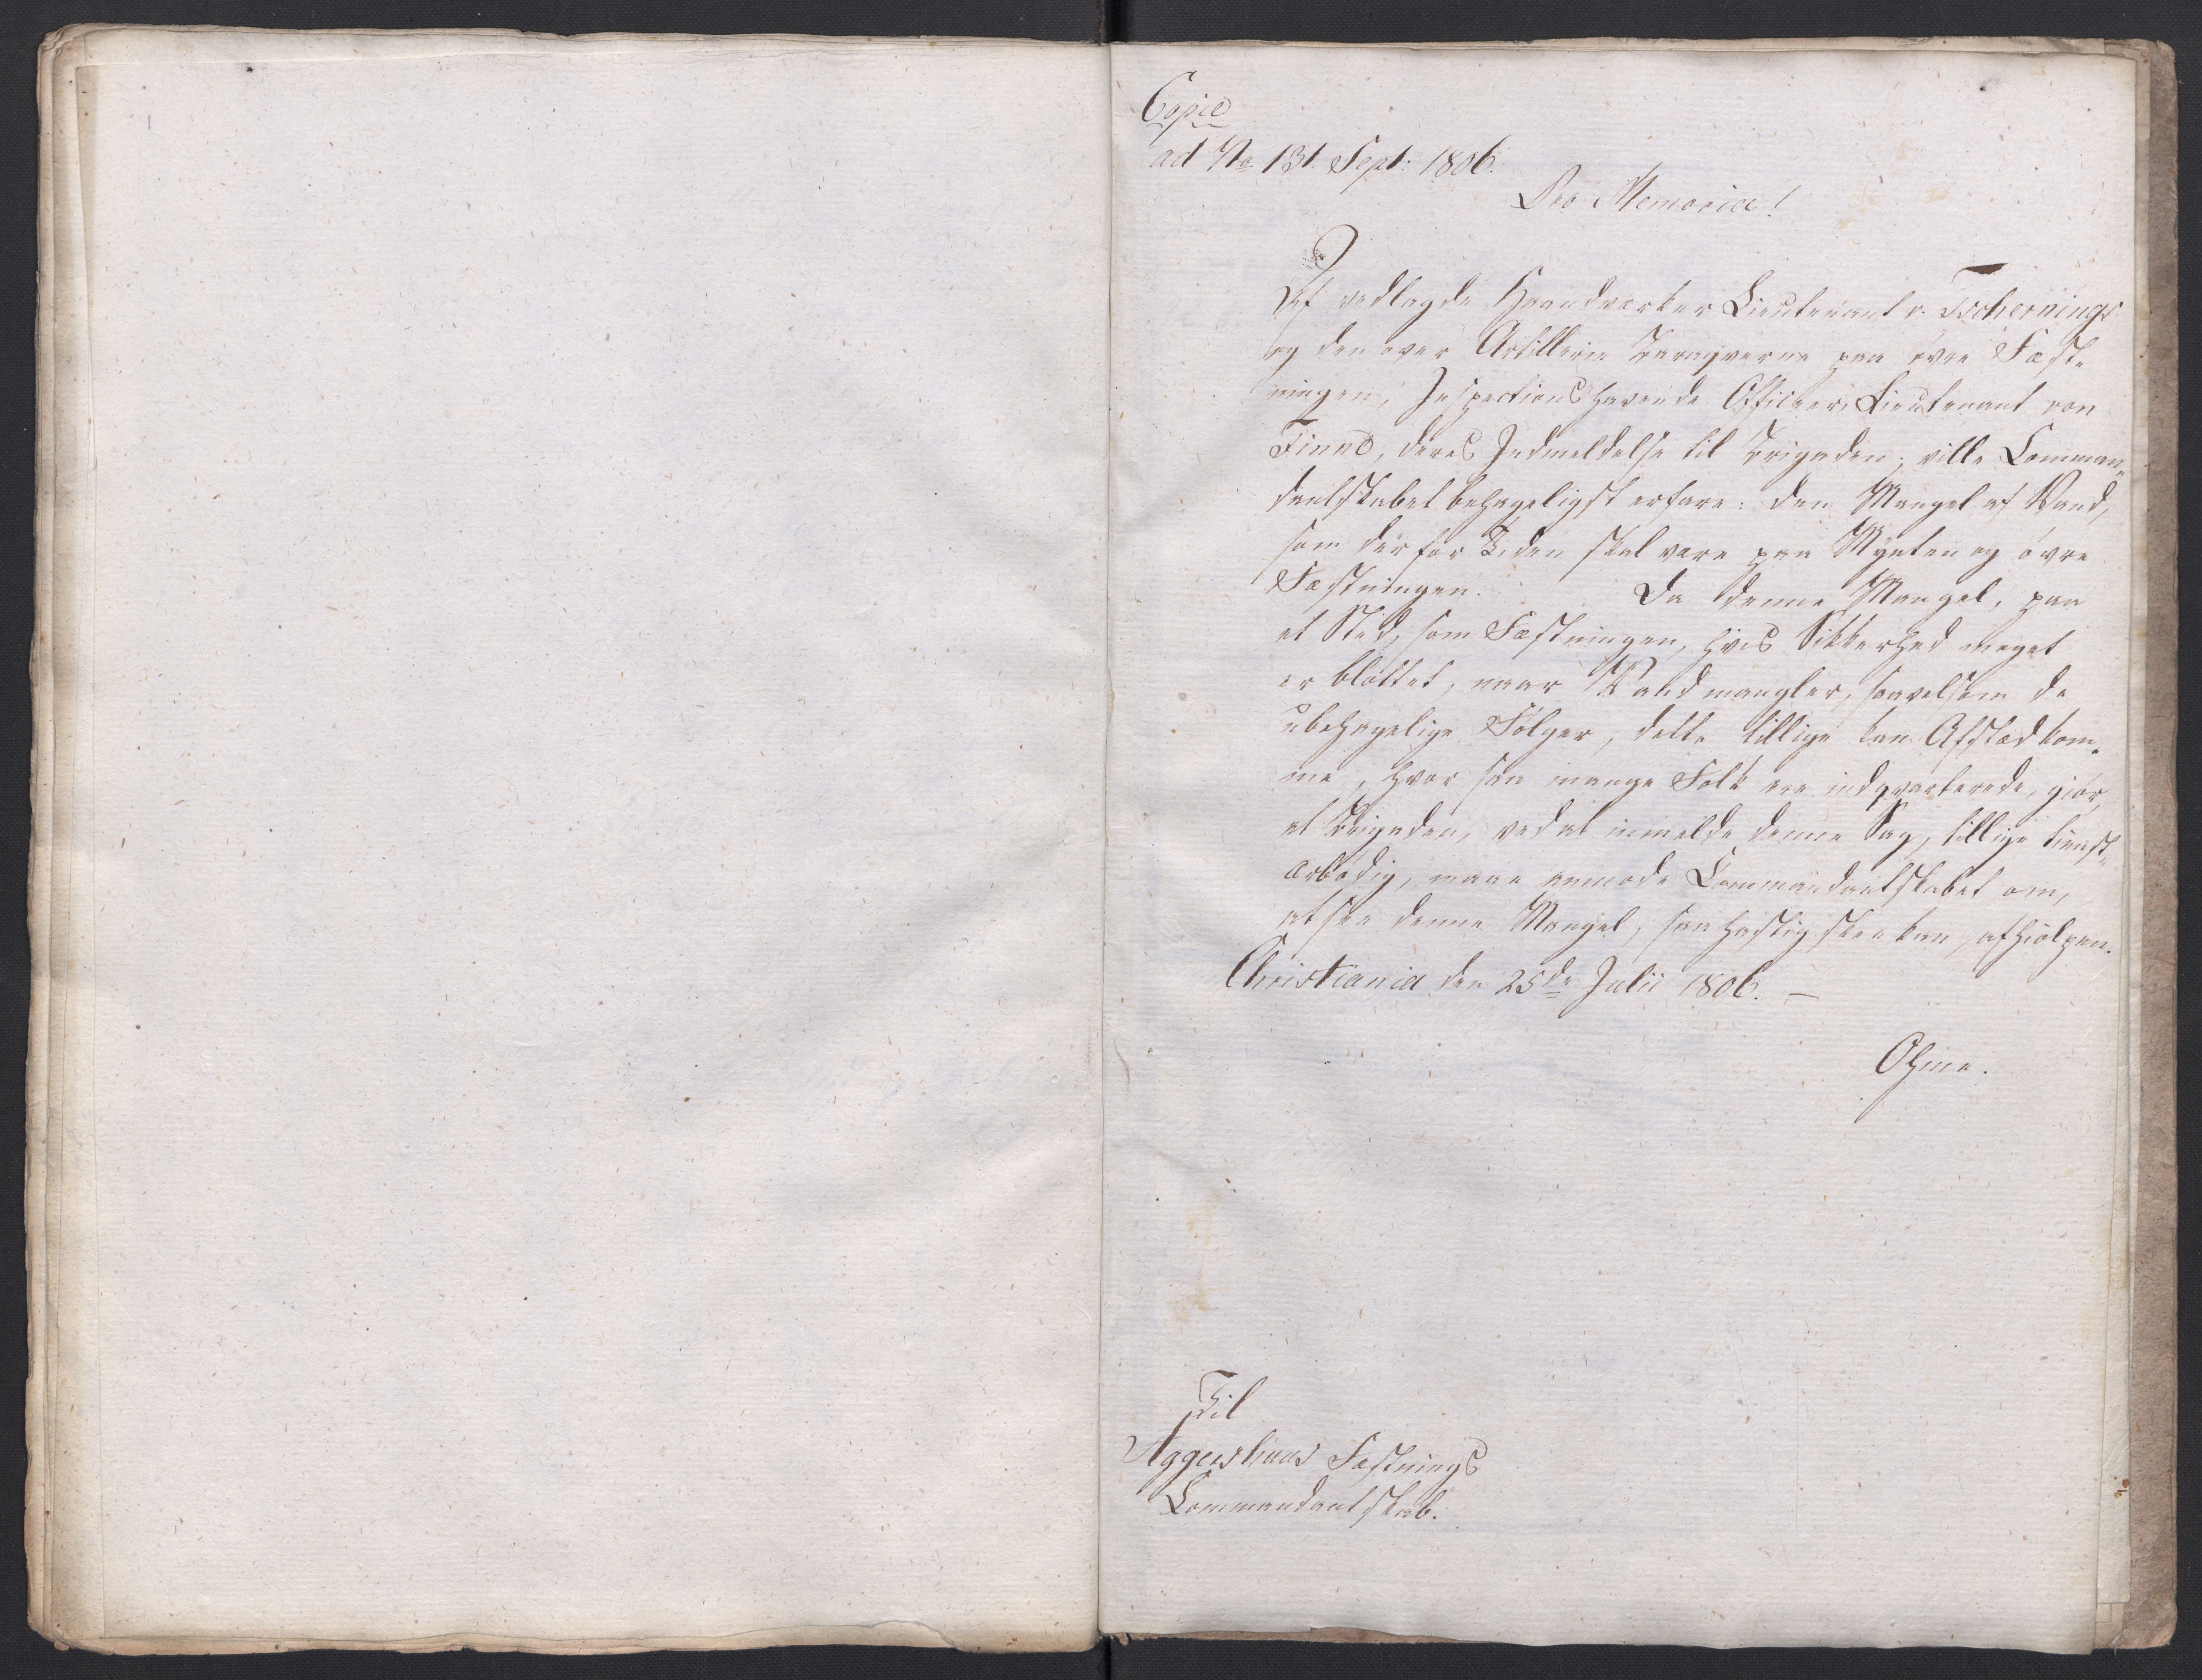 Copie
ad No 131. Sept: 1806.
Pro Memoria!
Af vedlagde Haandværker Lieutenant v. Tschernings
og den over Artillerie Baraqverne paa øvre Fæst-
ningen, Inspections havende Officeer, Lieutenant von
Finne, deres Indmeldelse til Brigaden; ville Comman-
dantskabet behageligst erfare: den Mangel af Vand,
som der for Tiden skal være paa Mynten og øvre
Fæstningen. Da denne Mangel, paa
et Sted, som Fæstningen, hvis Sikkerhed meget
er blottet, naar Vand mangler, saavelsom de
ubehagelige Følger, dette tillige kan Afsted kom-
me, hvor saa mange Folk ere indqvarterede, giør,
at Brigaden, ved at inmelde denne Sag, tillige tienst-
ærbødig, maae anmode Commandantskabet om,
at see denne Mangel, saa hastig skee kan, afhiolpen.
Christiania den 25de Julii 1806. —
Ohme.
Til
Aggershuus Fæstnings
Commandantskab.